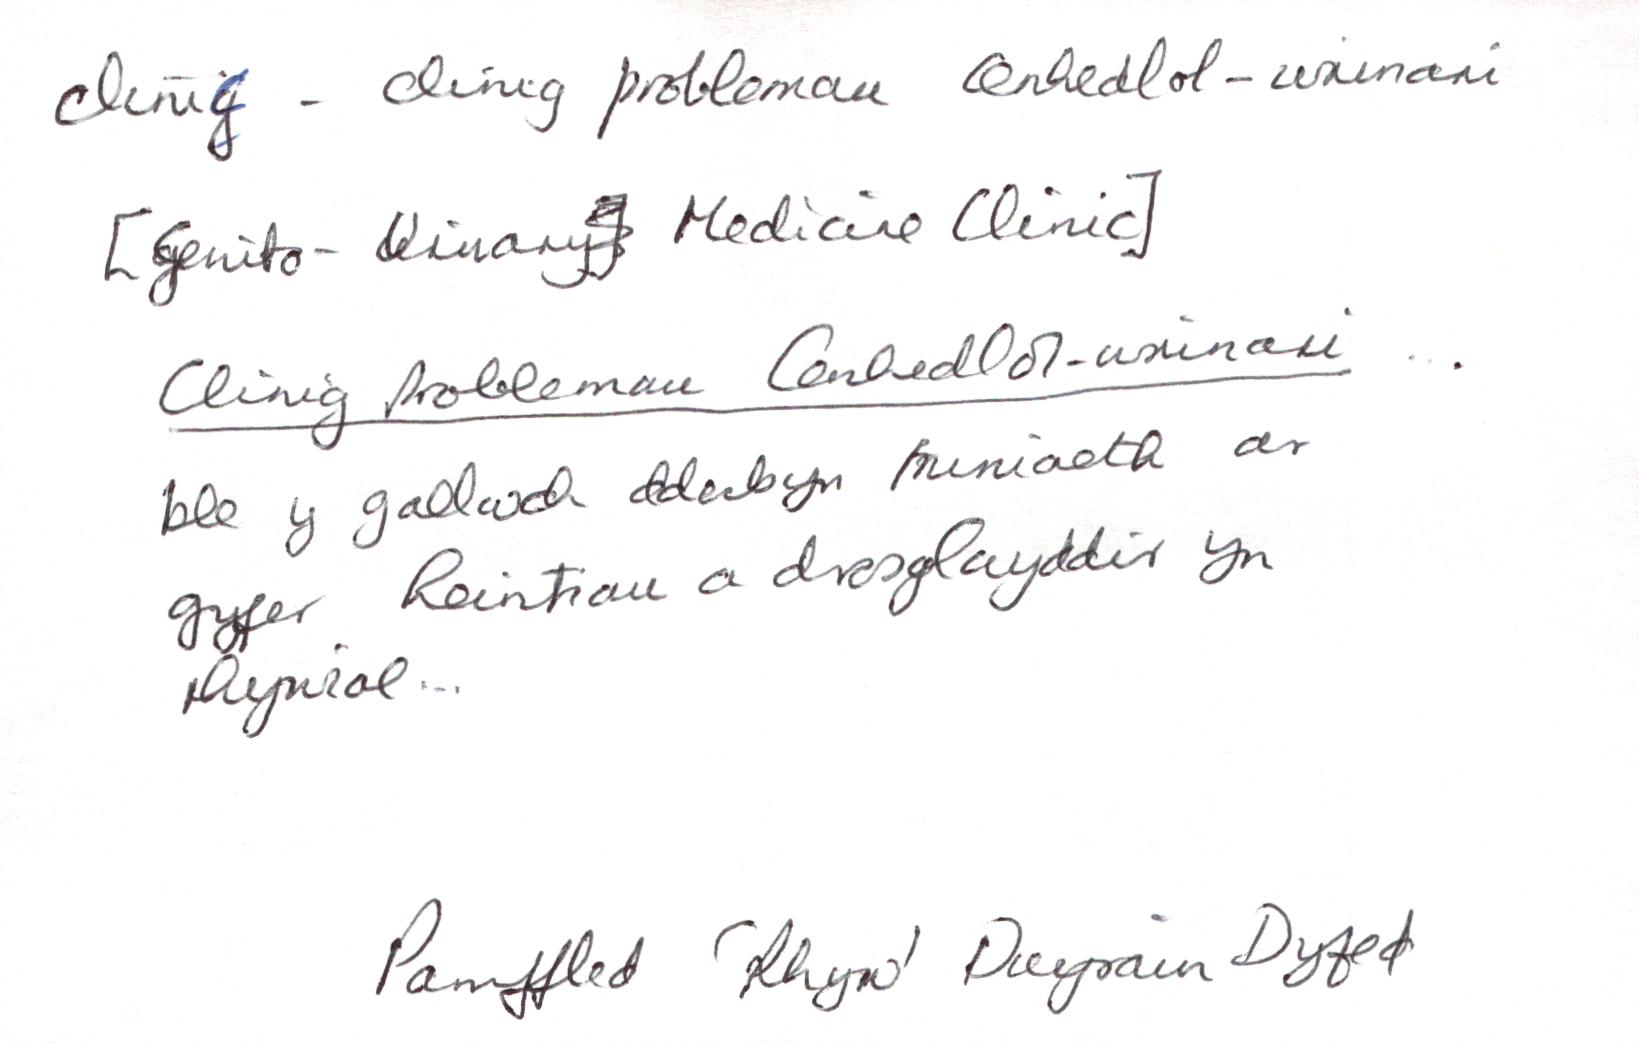 clinig - clinig problemau Cenhedlol-wrinari
[Genito-Urinary Medicine Clinic]
Clinig Problemau Cenhedlol-wrinari ...
ble y gallwch dderbyn triniaeth ar
gyfer heintiau a drosglwyddir yn
rhywiol ...
Pamffled 'Rhyw' Dwyrain Dyfed